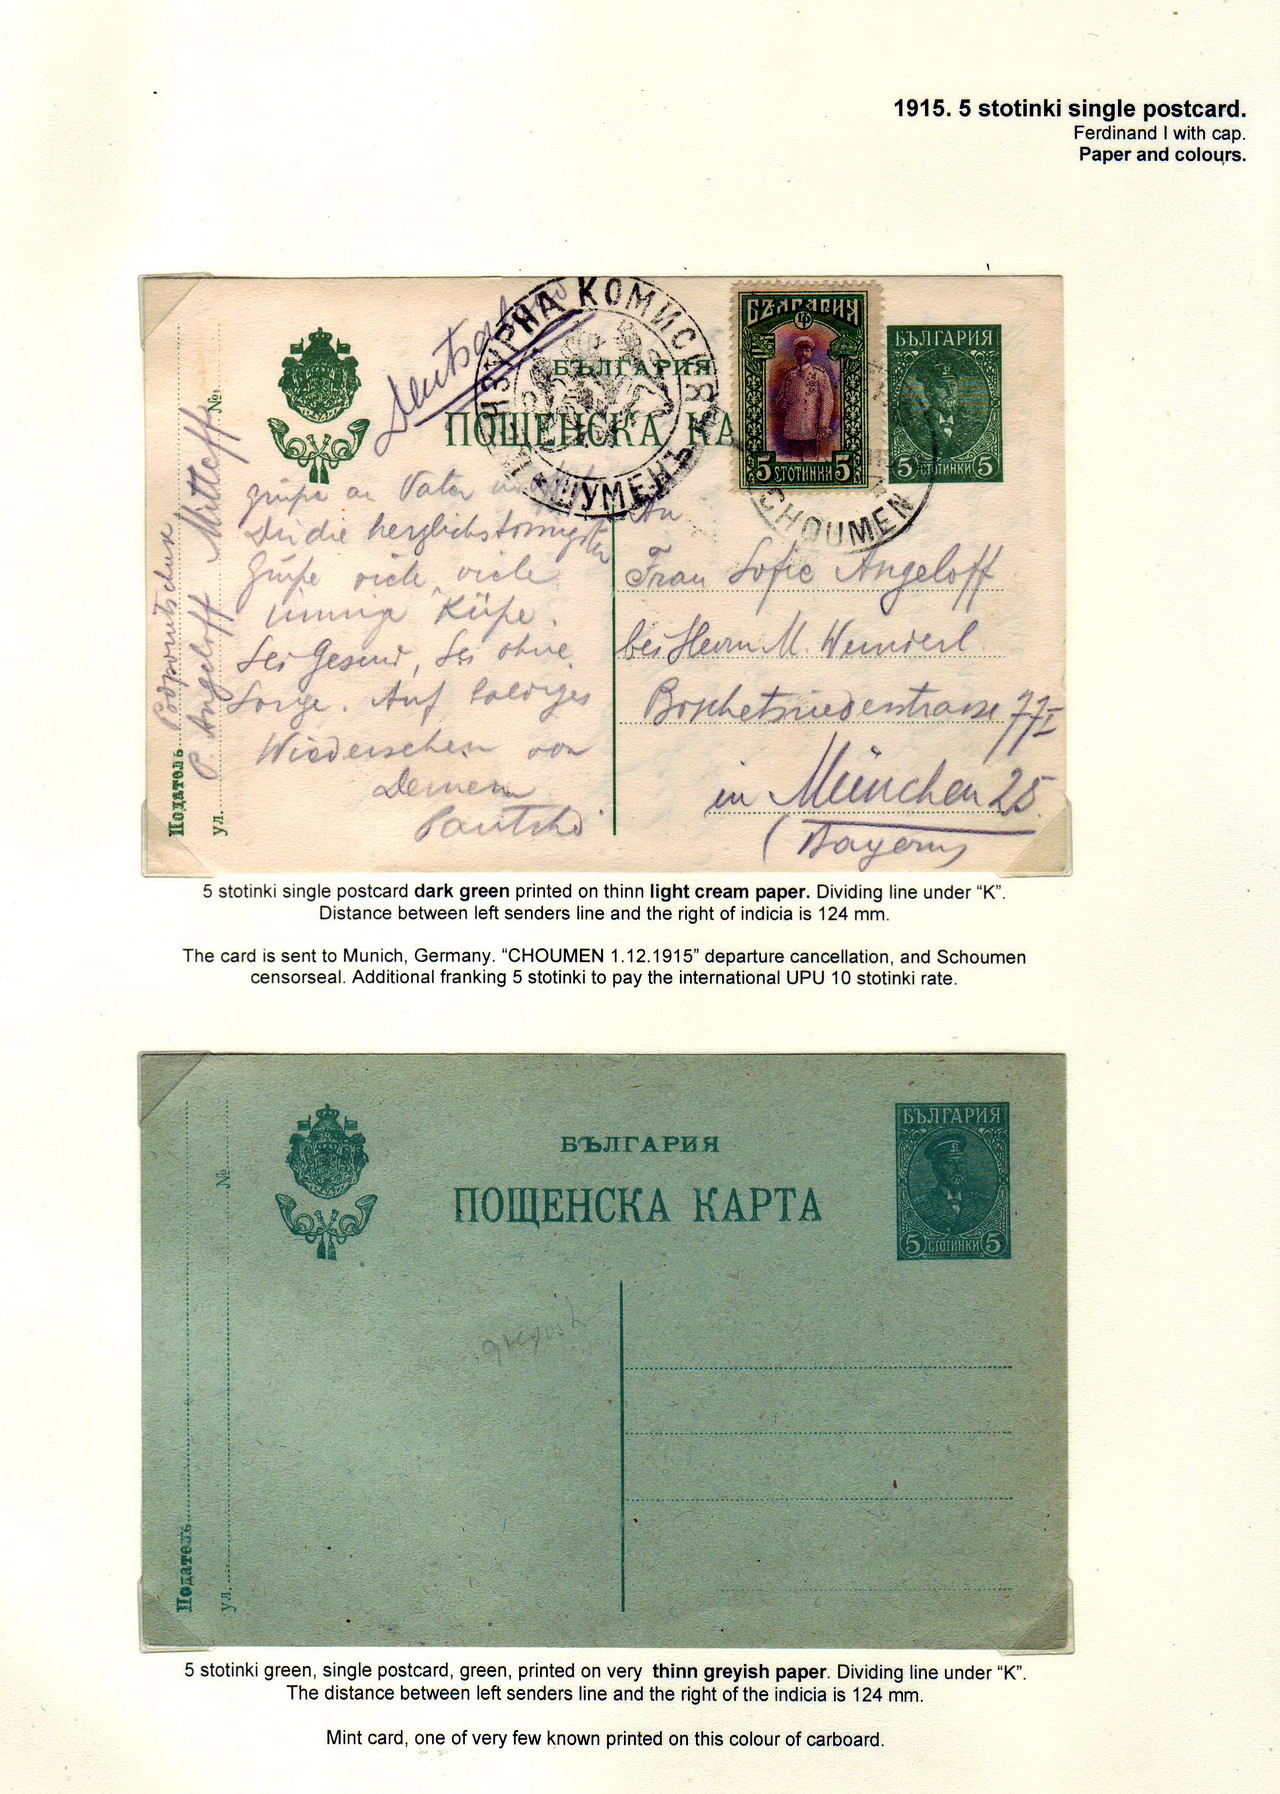 1915. 5 stotinki single postcard.
Ferdinand I with cap.
Paper and colours.
ЦЕНЗУРНА КОМИСИЯ
ШУМЕНЪ
Deutschland
БЪЛГАРИЯ
ПОЩЕНСКА КА
БЪЛГАРИЯ
5 СТОТИНКИ 5
БЪЛГАРИЯ
5 СТОТИНКИ 5
CHOUMEN
№
Податель
P. Angeloff Mitteff
ул.
Grüße an Vater
Dir die herzlichst
Grüße viele, viele
innige Küße.
Sei Gesund, Sei ohne
Sorge. Auf baldiges
Wiedersehen von
Deinem
Pantscho
An
Frau Sofie Angeloff
bei Herrn M. Wunderl
Boschetsriederstrasse 77 I
in München 25.
(Bayern)
5 stotinki single postcard dark green printed on thinn light cream paper. Dividing line under “K”.
Distance between left senders line and the right of indicia is 124 mm.
The card is sent to Munich, Germany. “CHOUMEN 1.12.1915” departure cancellation, and Schoumen
censorseal. Additional franking 5 stotinki to pay the international UPU 10 stotinki rate.
БЪЛГАРИЯ
ПОЩЕНСКА КАРТА
БЪЛГАРИЯ
5 СТОТИНКИ 5
№
Податель
ул.
5 stotinki green, single postcard, green, printed on very thinn greyish paper. Dividing line under “K”.
The distance between left senders line and the right of the indicia is 124 mm.
Mint card, one of very few known printed on this colour of carboard.